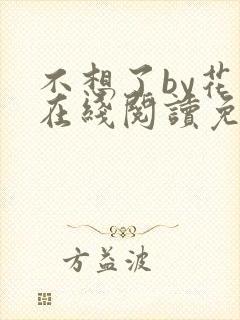 不想了by花
在綫閱讀免
方益波